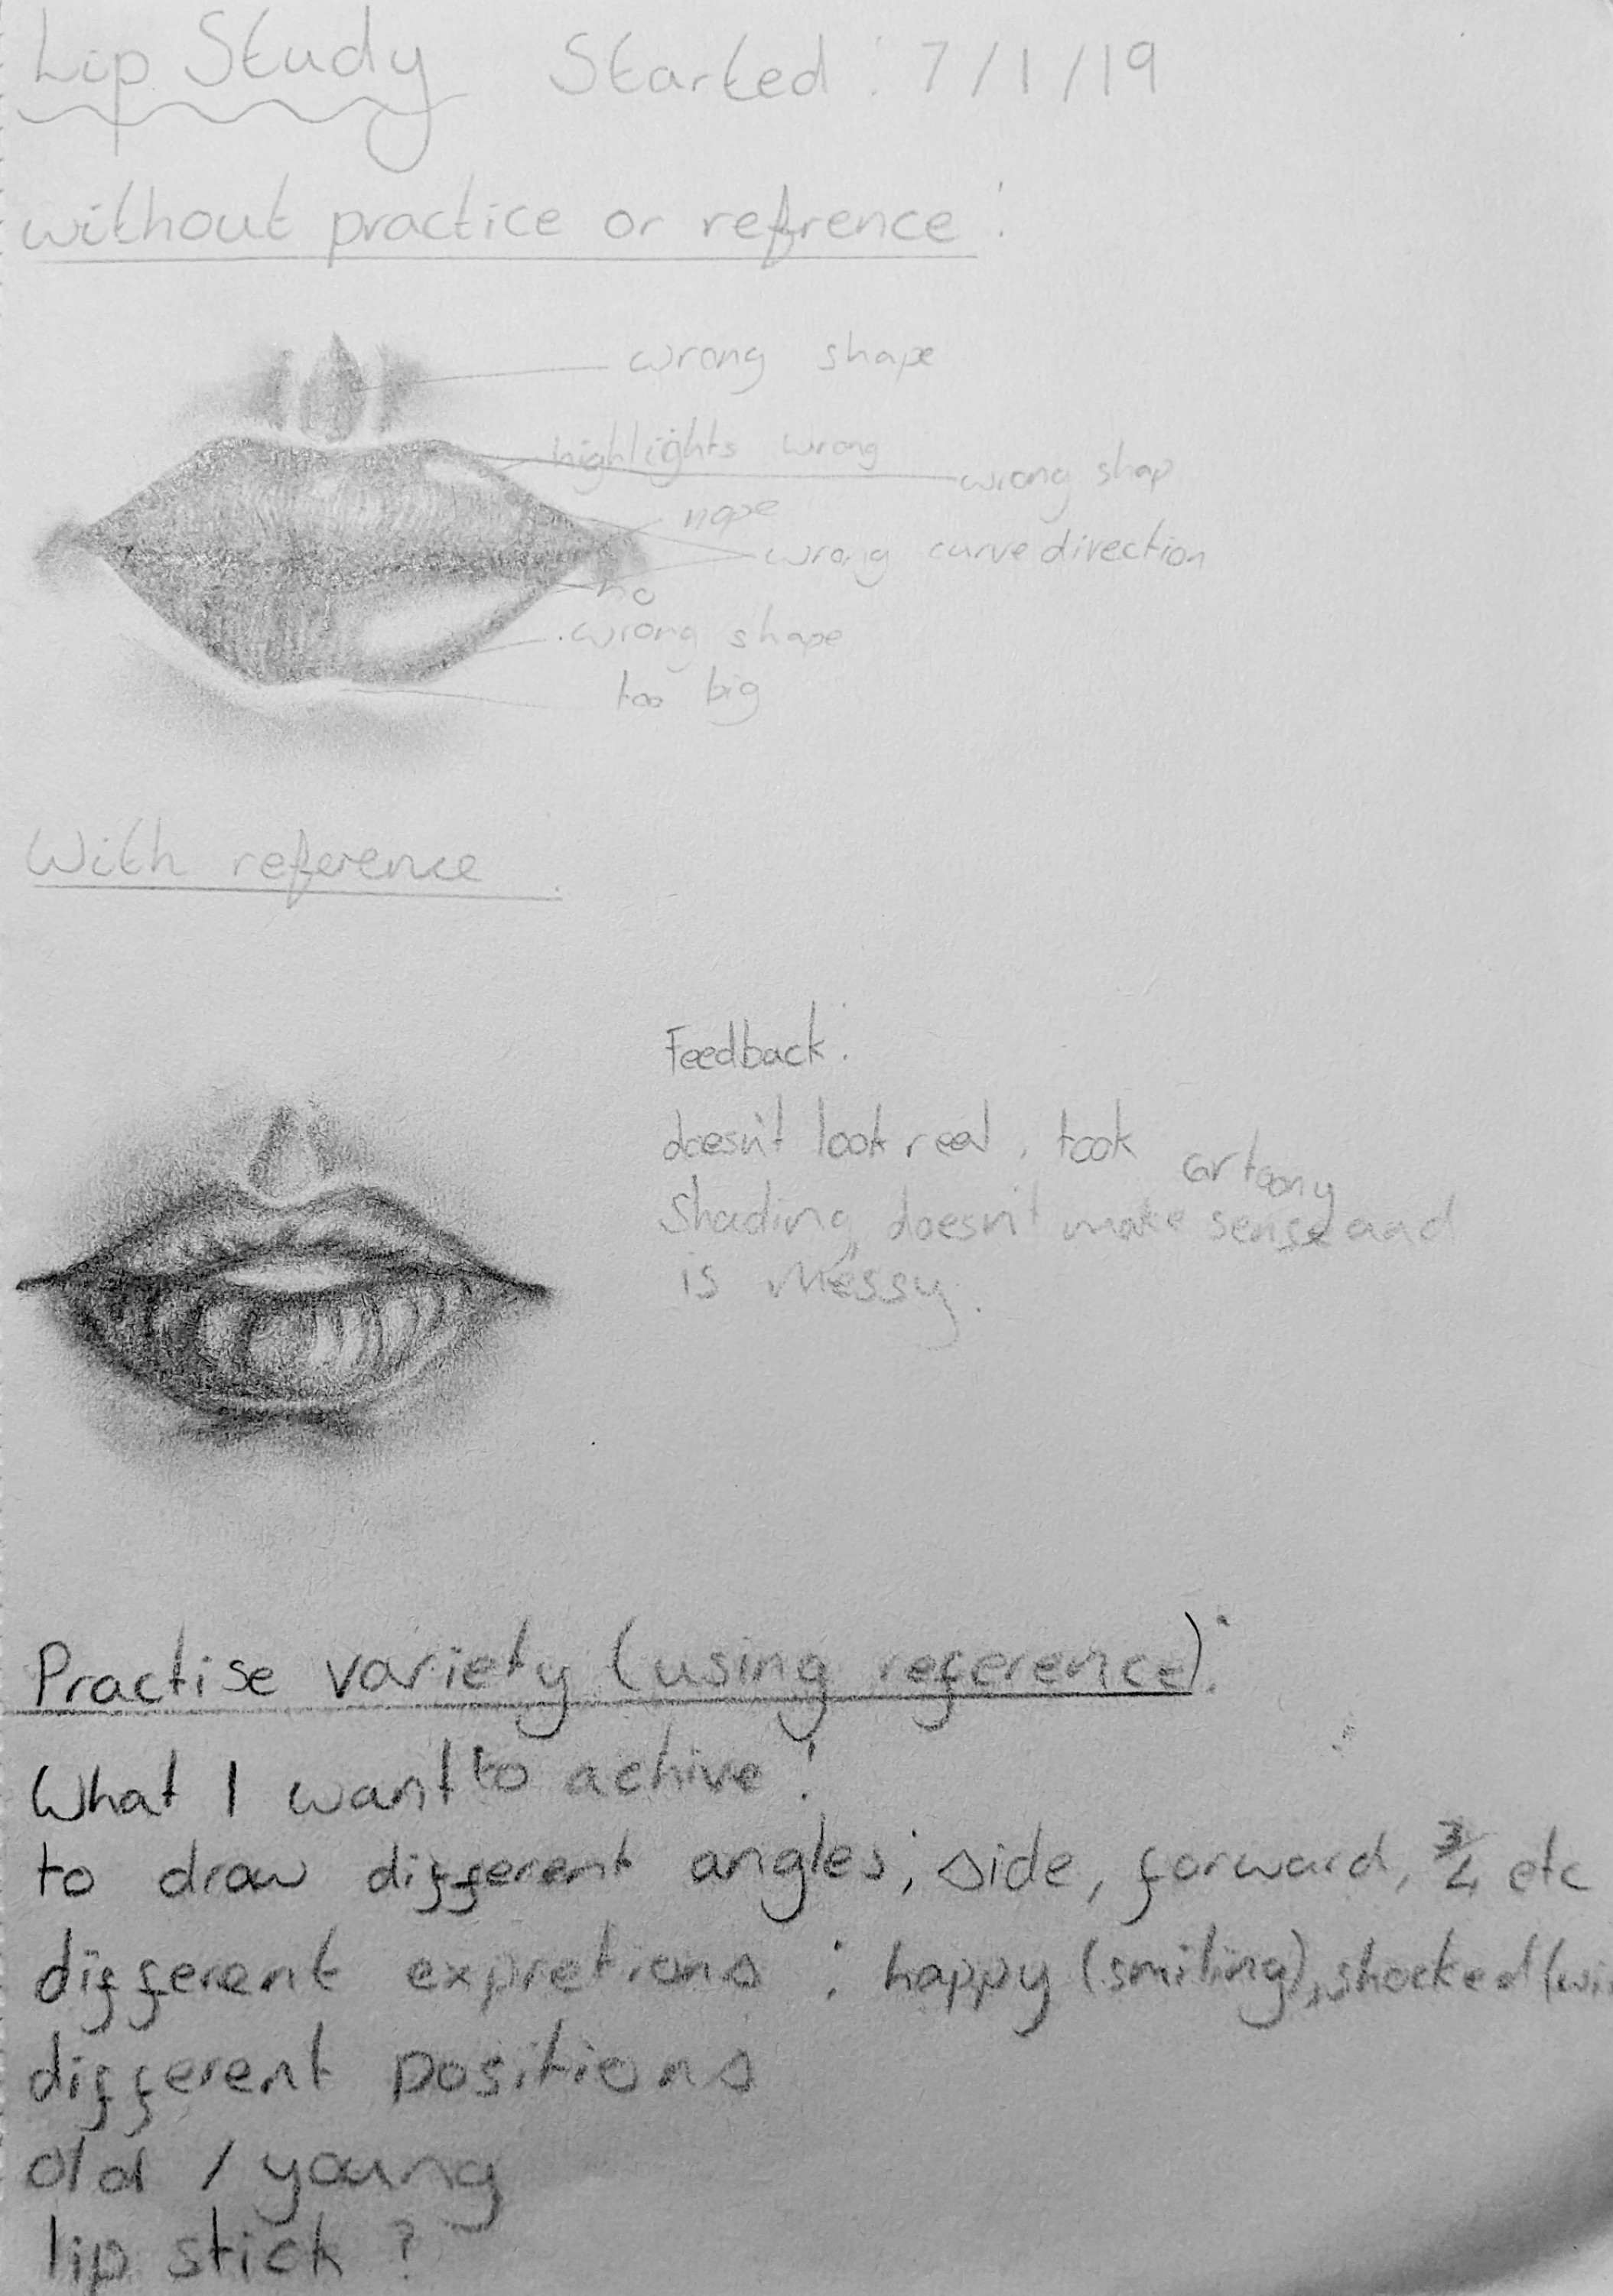 Lip Study Started: 7/1/19
without practice or refrence:
wrong shape
highlights wrong
wrong shap
nope
wrong curve direction
no
wrong shape
too big
With reference
Feedback:
doesn't look real, took cartoony
Shading doesn't make sense and
is messy.
Practise variety (using reference):
What I want to achive:
to draw different angles; side, forward, 3/4 etc
different expretions : happy (smiling), shocked (wi
different positions
old / young
lip stick ?